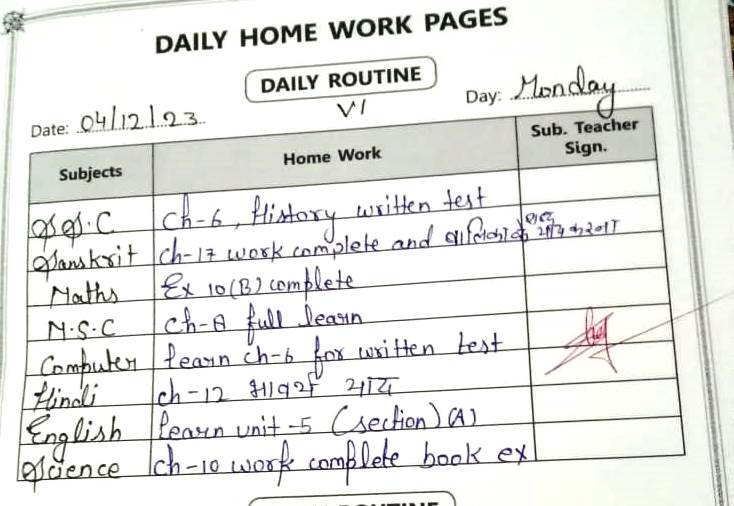 DAILY HOME WORK PAGES
DAILY ROUTINE
VI
Date: 04/12/23
Day: Monday
Subjects Home Work Sub. Teacher Sign.
S.S.C ch-6, History written test
Sanskrit ch-17 work complete and बालिका के शब्द याद करना
Maths Ex 10(B) complete
M.S.C ch-8 full learn
Computer learn ch-6 for written test
Hindi ch-12 भावार्थ याद
English learn unit-5 (section)(A)
Science ch-10 work complete book ex